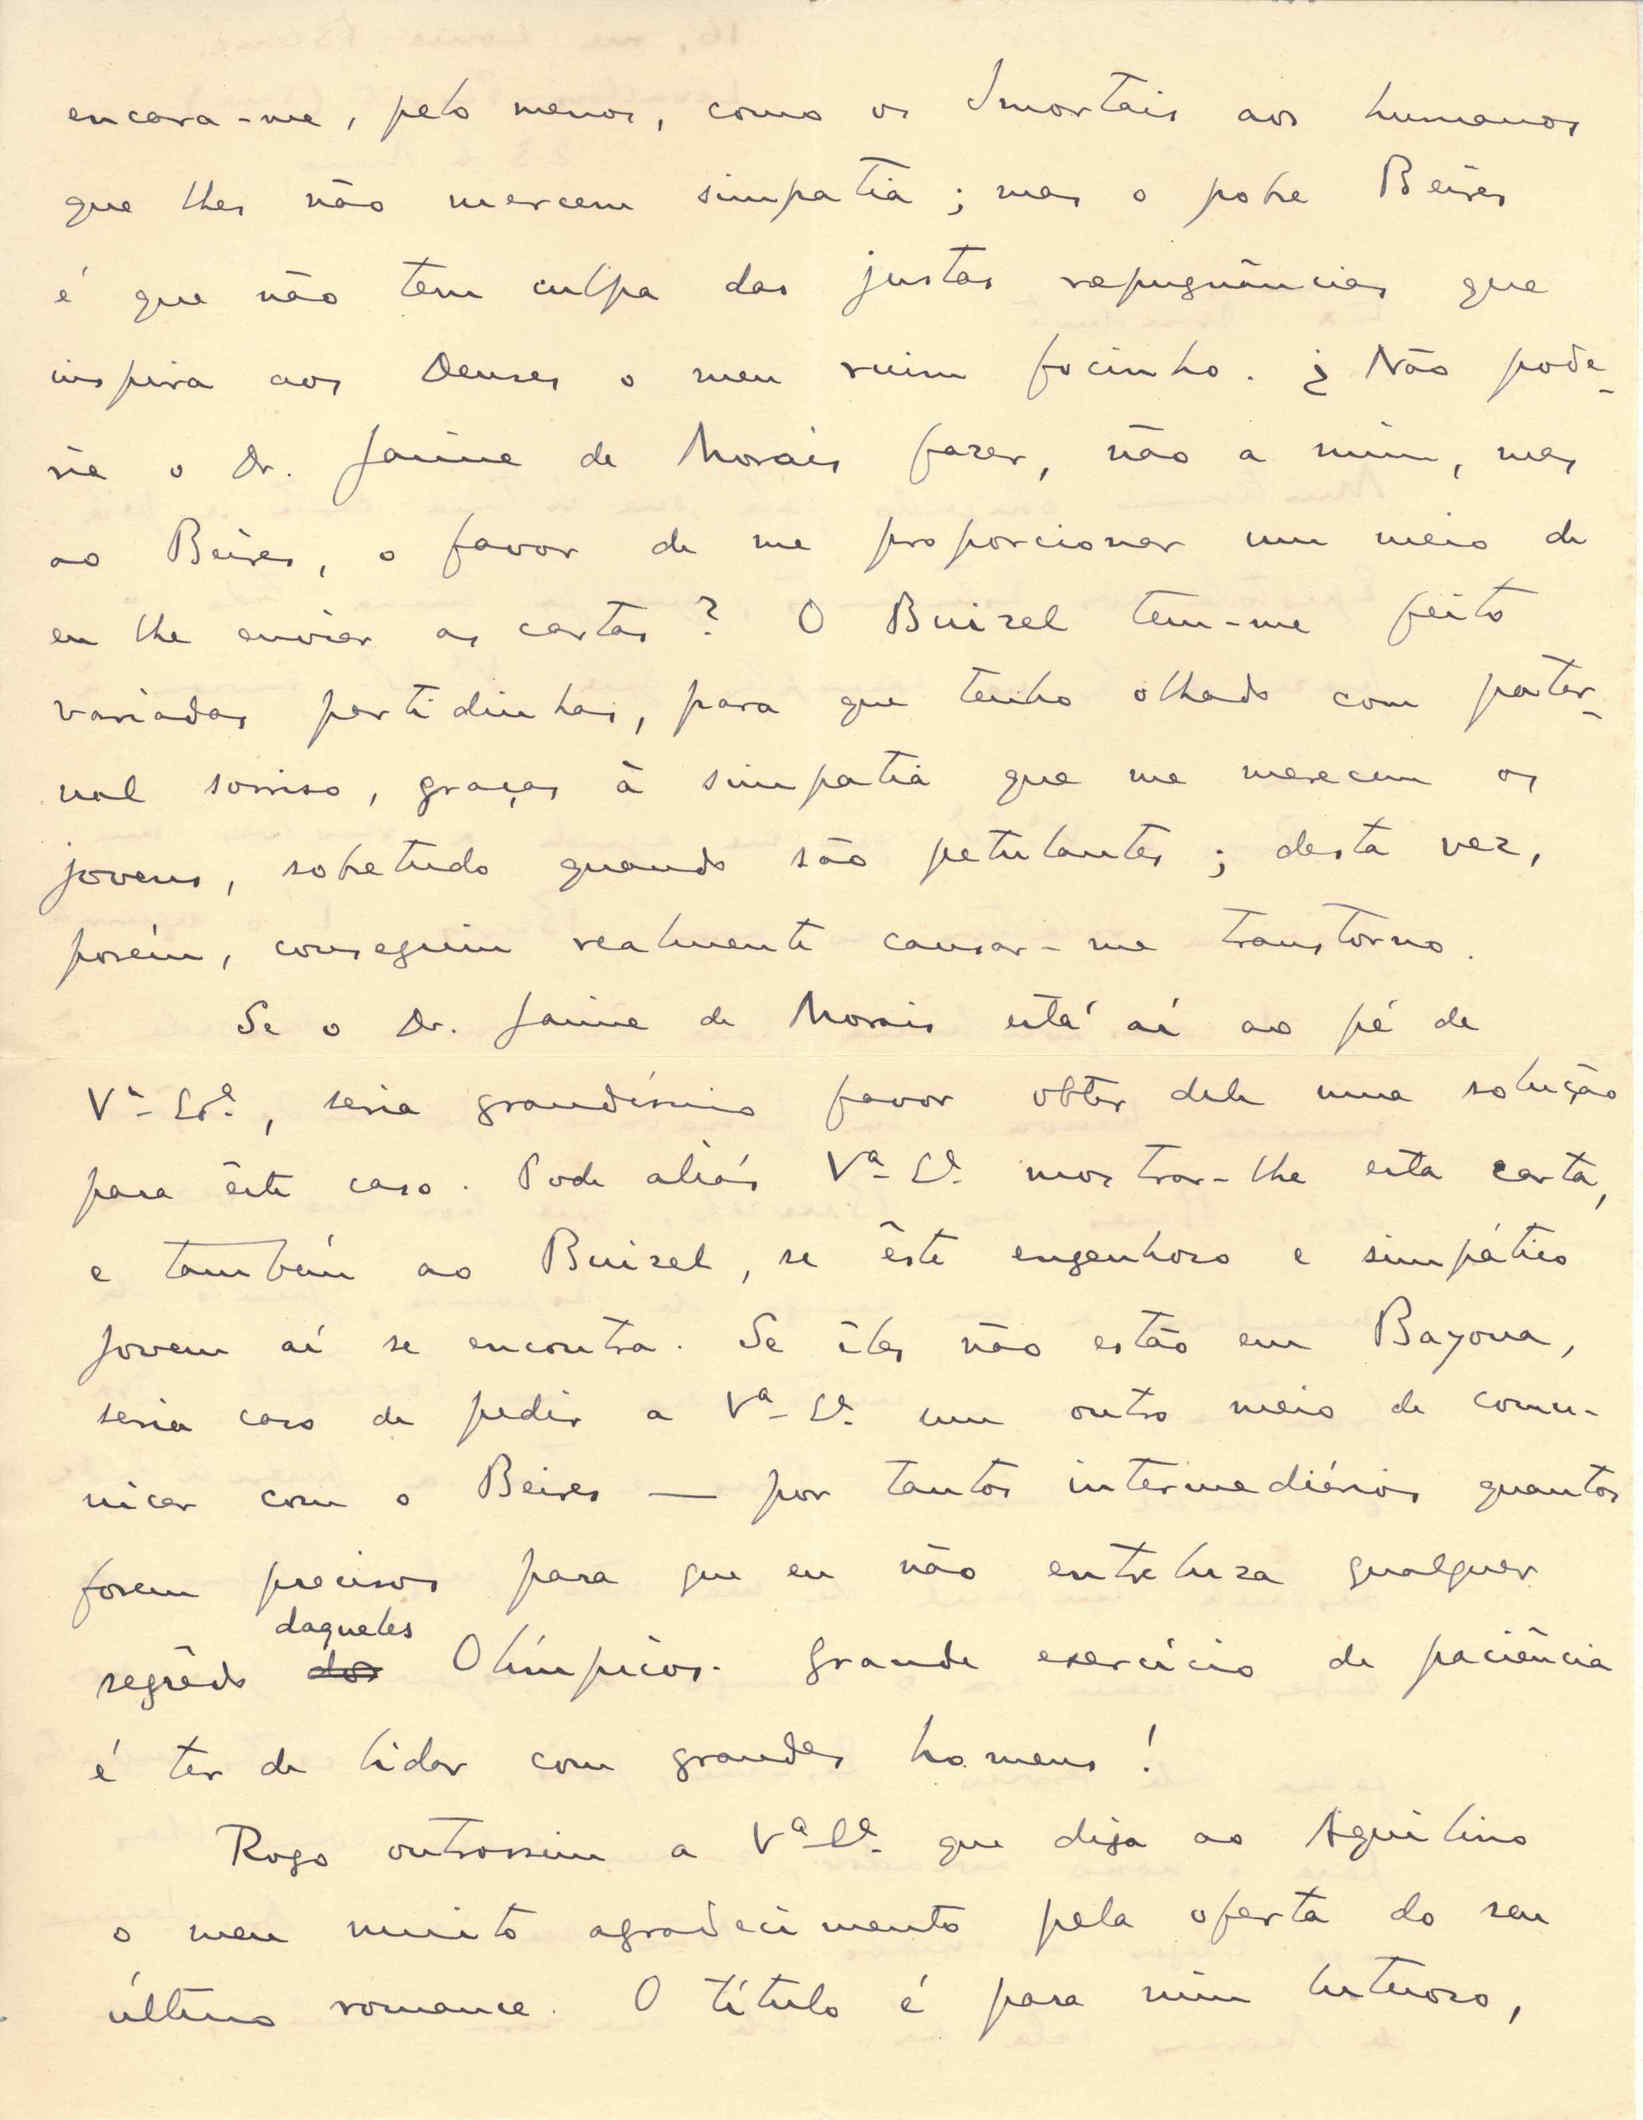 encara-me, pelo menos, como os Imortais aos humanos
que lhes não merecem simpatia; mas o pobre Beires
é que não tem culpa das justas repugnâncias que
inspira aos Deuses o meu ruim focinho. ¿Não pode-
ria o Dr. Jaime de Morais fazer, não a mim, mas
ao Beires, o favor de me proporcionar um meio de
eu lhe enviar as cartas? O Buisel tem-me feito
variadas partidinhas, para que tenho olhado com pater-
nal sorriso, graças à simpatia que me merecem os
jovens, sobretudo quando são petulantes; desta vez,
porém, conseguiu realmente causar-me transtorno.
Se o Dr. Jaime de Morais está aí ao pé de
Vª Srª, seria grandíssimo favor obter dele uma solução
para êste caso. Pode aliás Vª Sª mostrar-lhe esta carta,
e também ao Buisel, se êste engenhoso e simpático
jovem aí se encontra. Se êles não estão em Bayona,
seria caso de pedir a Vª Sª um outro meio de comu-
nicar com o Beires — por tantos intermediários quantos
forem precisos para que eu não entreluza qualquer
segrêdo dos daqueles Olímpicos. Grande exercício de paciência
é ter de lidar com grandes homens!
Rogo outrossim a Vª Sª que diga ao Aquilino
o meu muito agradecimento pela oferta do seu
último romance. O título é para mim lutuoso,